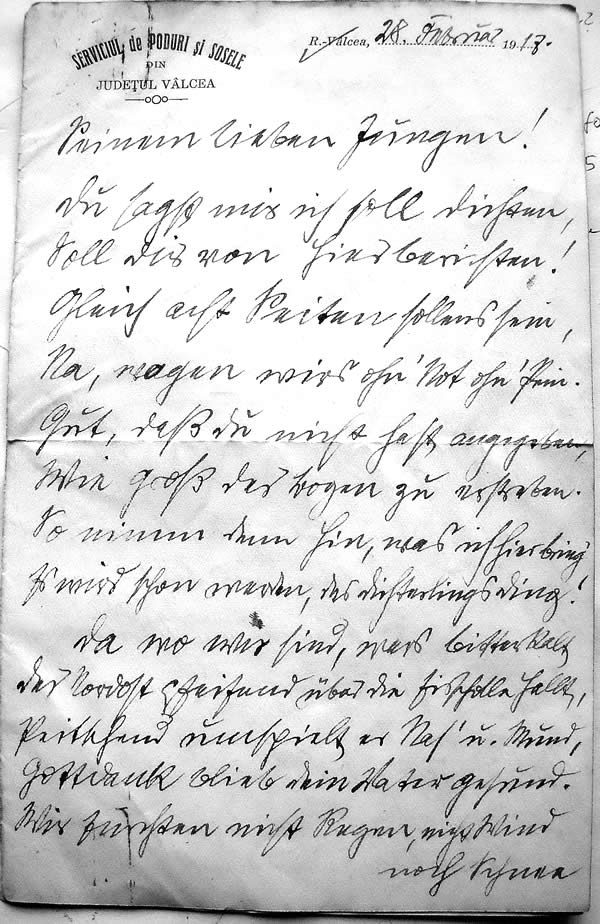 SERVICIUL de PODURI și SOSELE
DIN
JUDEȚUL VÂLCEA
R.-Vâlcea, 28. Februar 1918.
Seinem lieben Jungen!
Du sagst mir ich soll dichten,
Soll dir von hier berichten!
Gleich acht Seiten sollens sein,
Na, wagen wirs ohn' Not ohn' Pein.
Gut, daß du nicht hast angegeben,
Wie groß der Bogen zu erstreben.
So nimm denn hin, was ich hier bring'
Es wird schon werden, des Dichterlings Ding!
Da wo wir sind, wars bitterkalt
Der Nordost pfeifend über die Eisschale hallt,
Peitschend umspielt er Nas' u. Mund,
Gottdank blieb dein Vater gesund.
Wir furchten nicht Regen, nicht Wind
noch Schnee